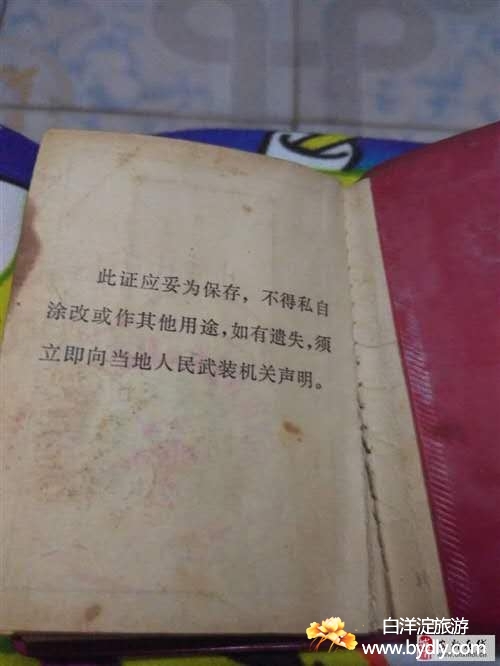 此证应妥为保存，不得私自
涂改或作其他用途，如有遗失，须
立即向当地人民武装机关声明。
白洋淀旅游
www.bydly.com